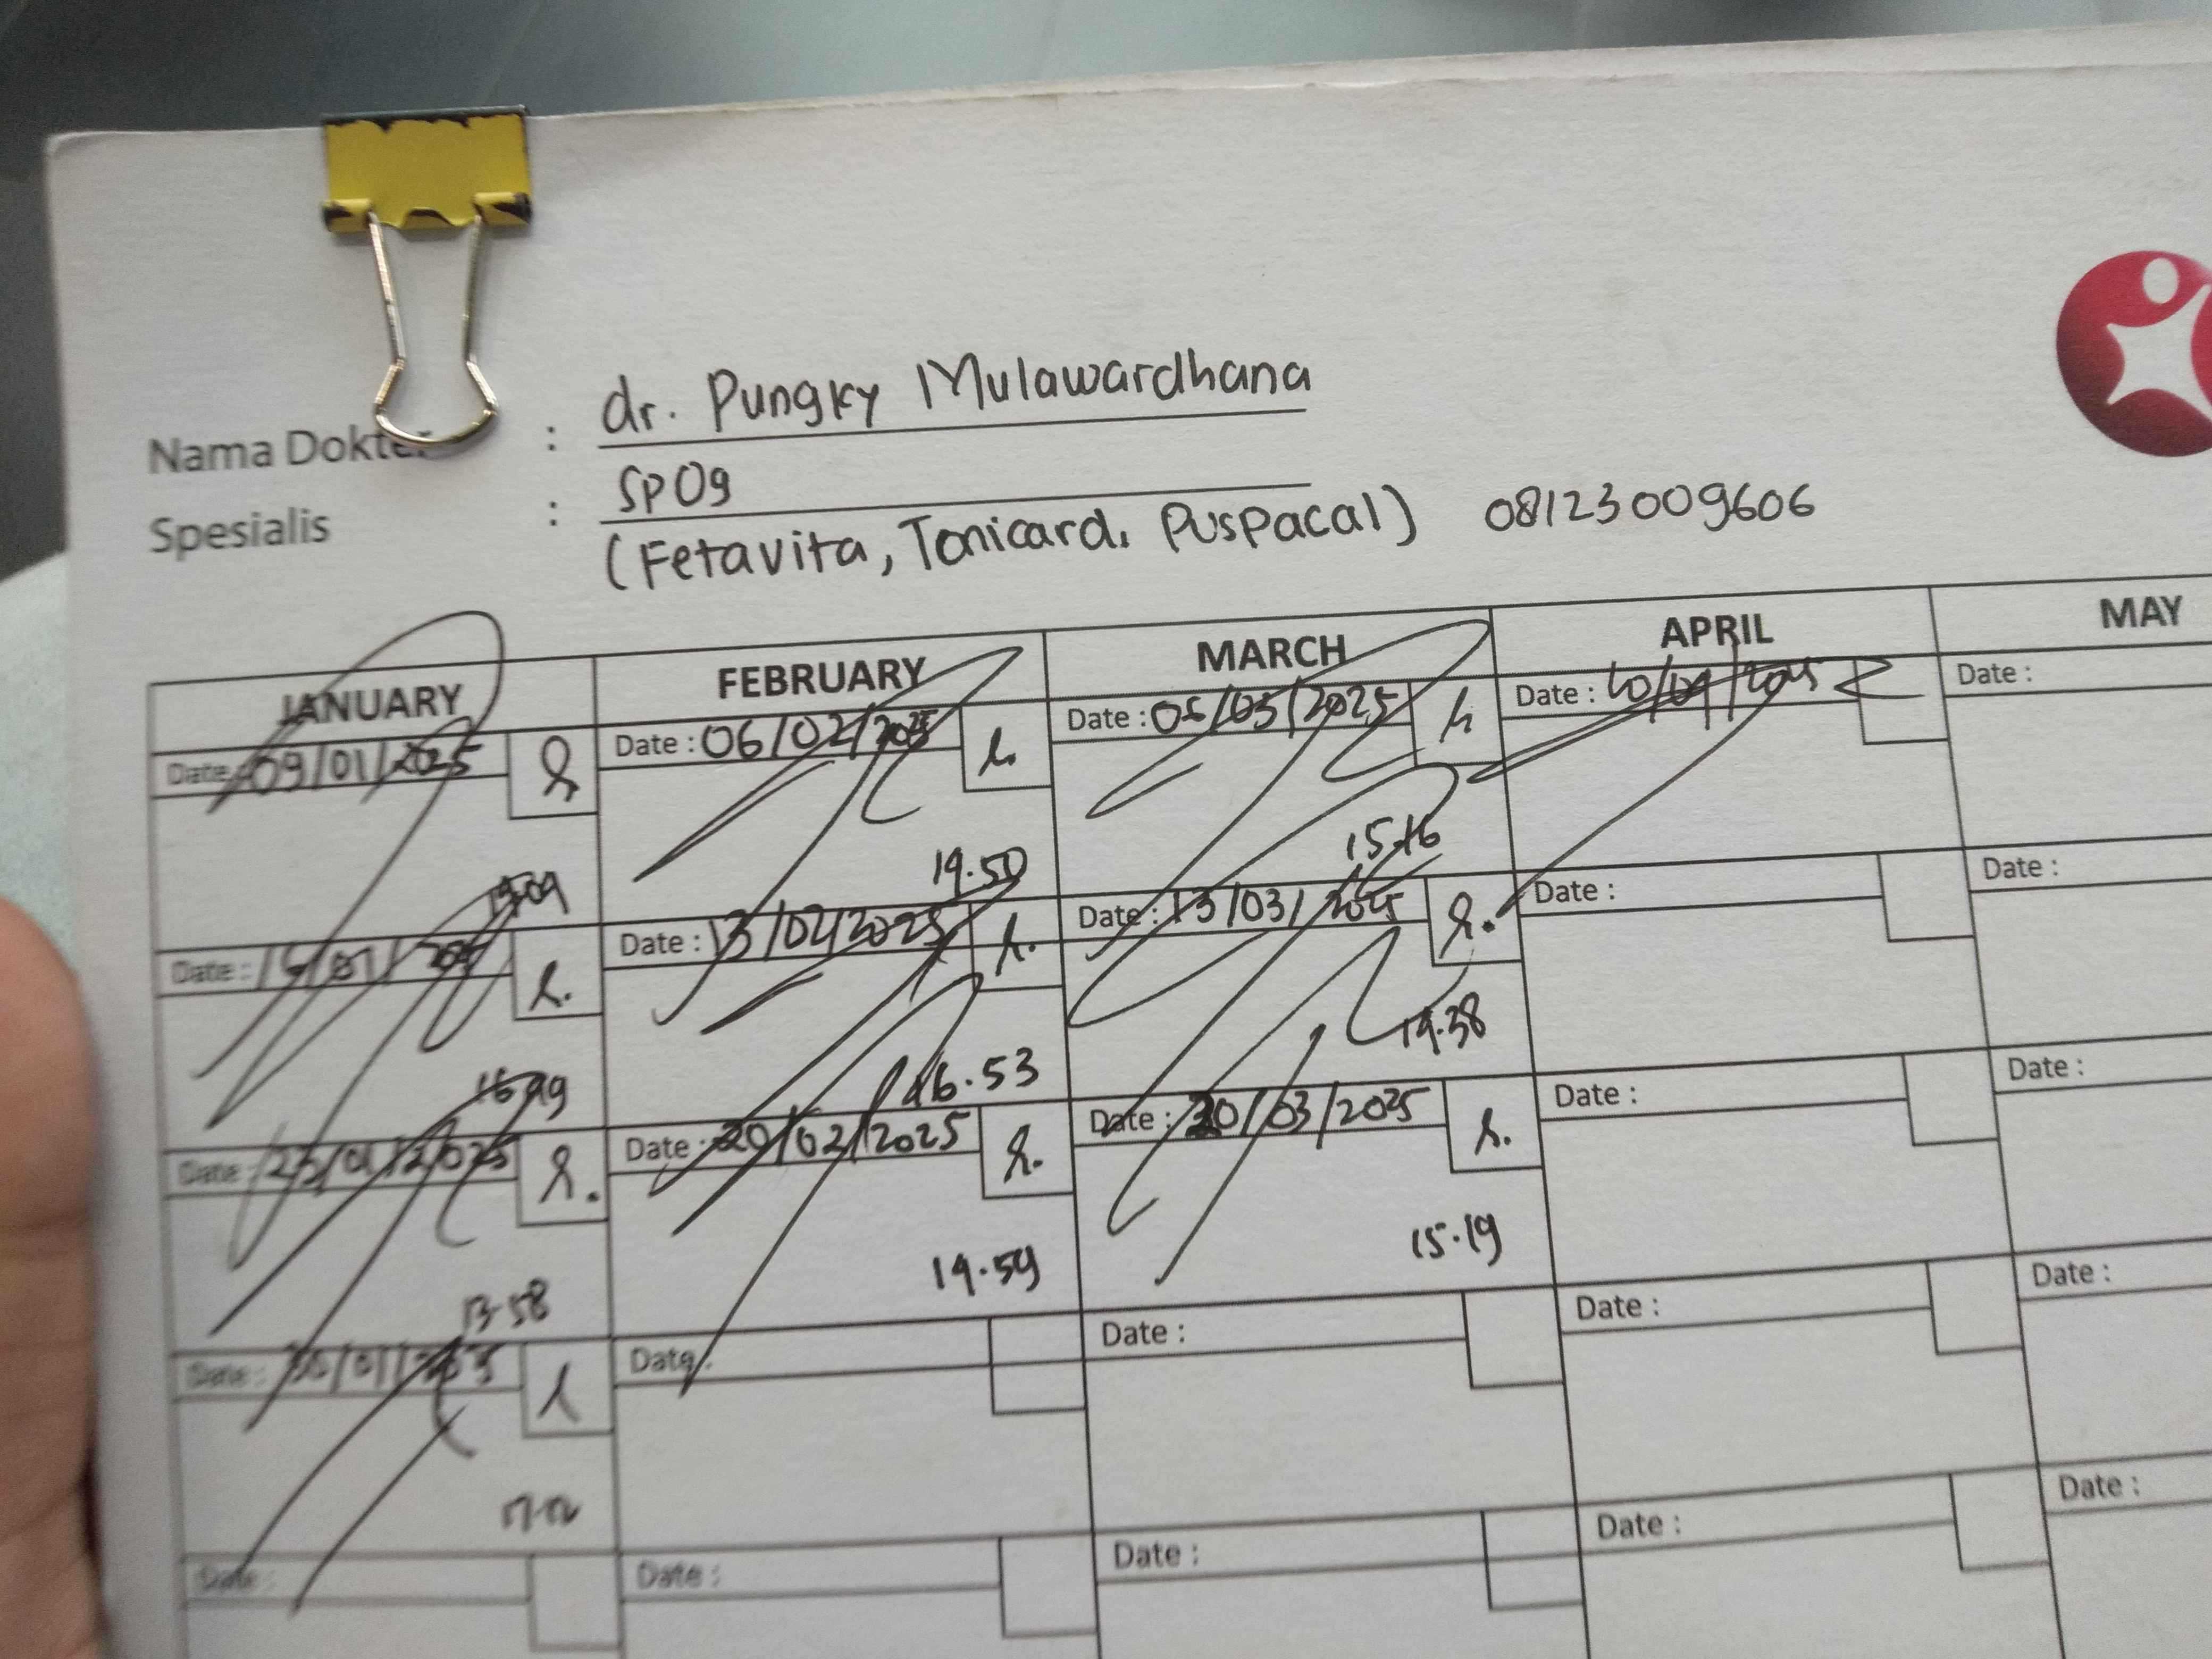 Nama Dokter : dr. Pungky Mulawardhana
Spesialis : SpOg
(Fetavita, Tonicard, Puspacal) 08123009606
JANUARY FEBRUARY MARCH APRIL MAY
Date : 09/01/2025 Date : 06/02/2025 Date : 06/03/2025 Date : 10/04/2025 Date :
19.50 15.16
Date : 16/01/2025 Date : 13/02/2025 Date : 13/03/2025 Date : Date :
16.53 19.38
Date : 23/01/2025 Date : 20/02/2025 Date : 20/03/2025 Date : Date :
13.58 19.59 15.19
Date : 30/01/2025 Date : Date : Date : Date :
Date : Date : Date : Date : Date :